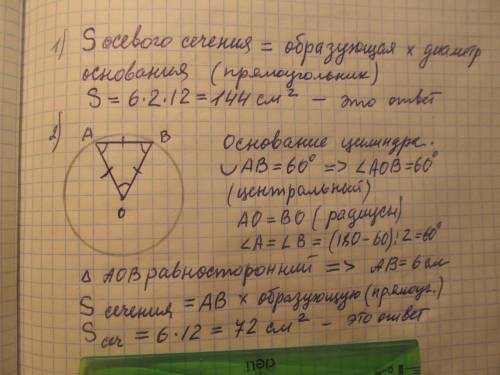 1) S осевого сечения = образующая × диаметр
основания (прямоугольник)
S = 6·2·12 = 144 см² – это ответ
2) A B
O
Основание цилиндра.
◡AB = 60° => ∠AOB = 60°
(центральный)
AO = BO (радиусы)
∠A = ∠B = (180 – 60) : 2 = 60°
△ AOB равносторонний => AB = 6 см
S сечения = AB × образующую (прямоуг.)
S сеч = 6·12 = 72 см² – это ответ
deli